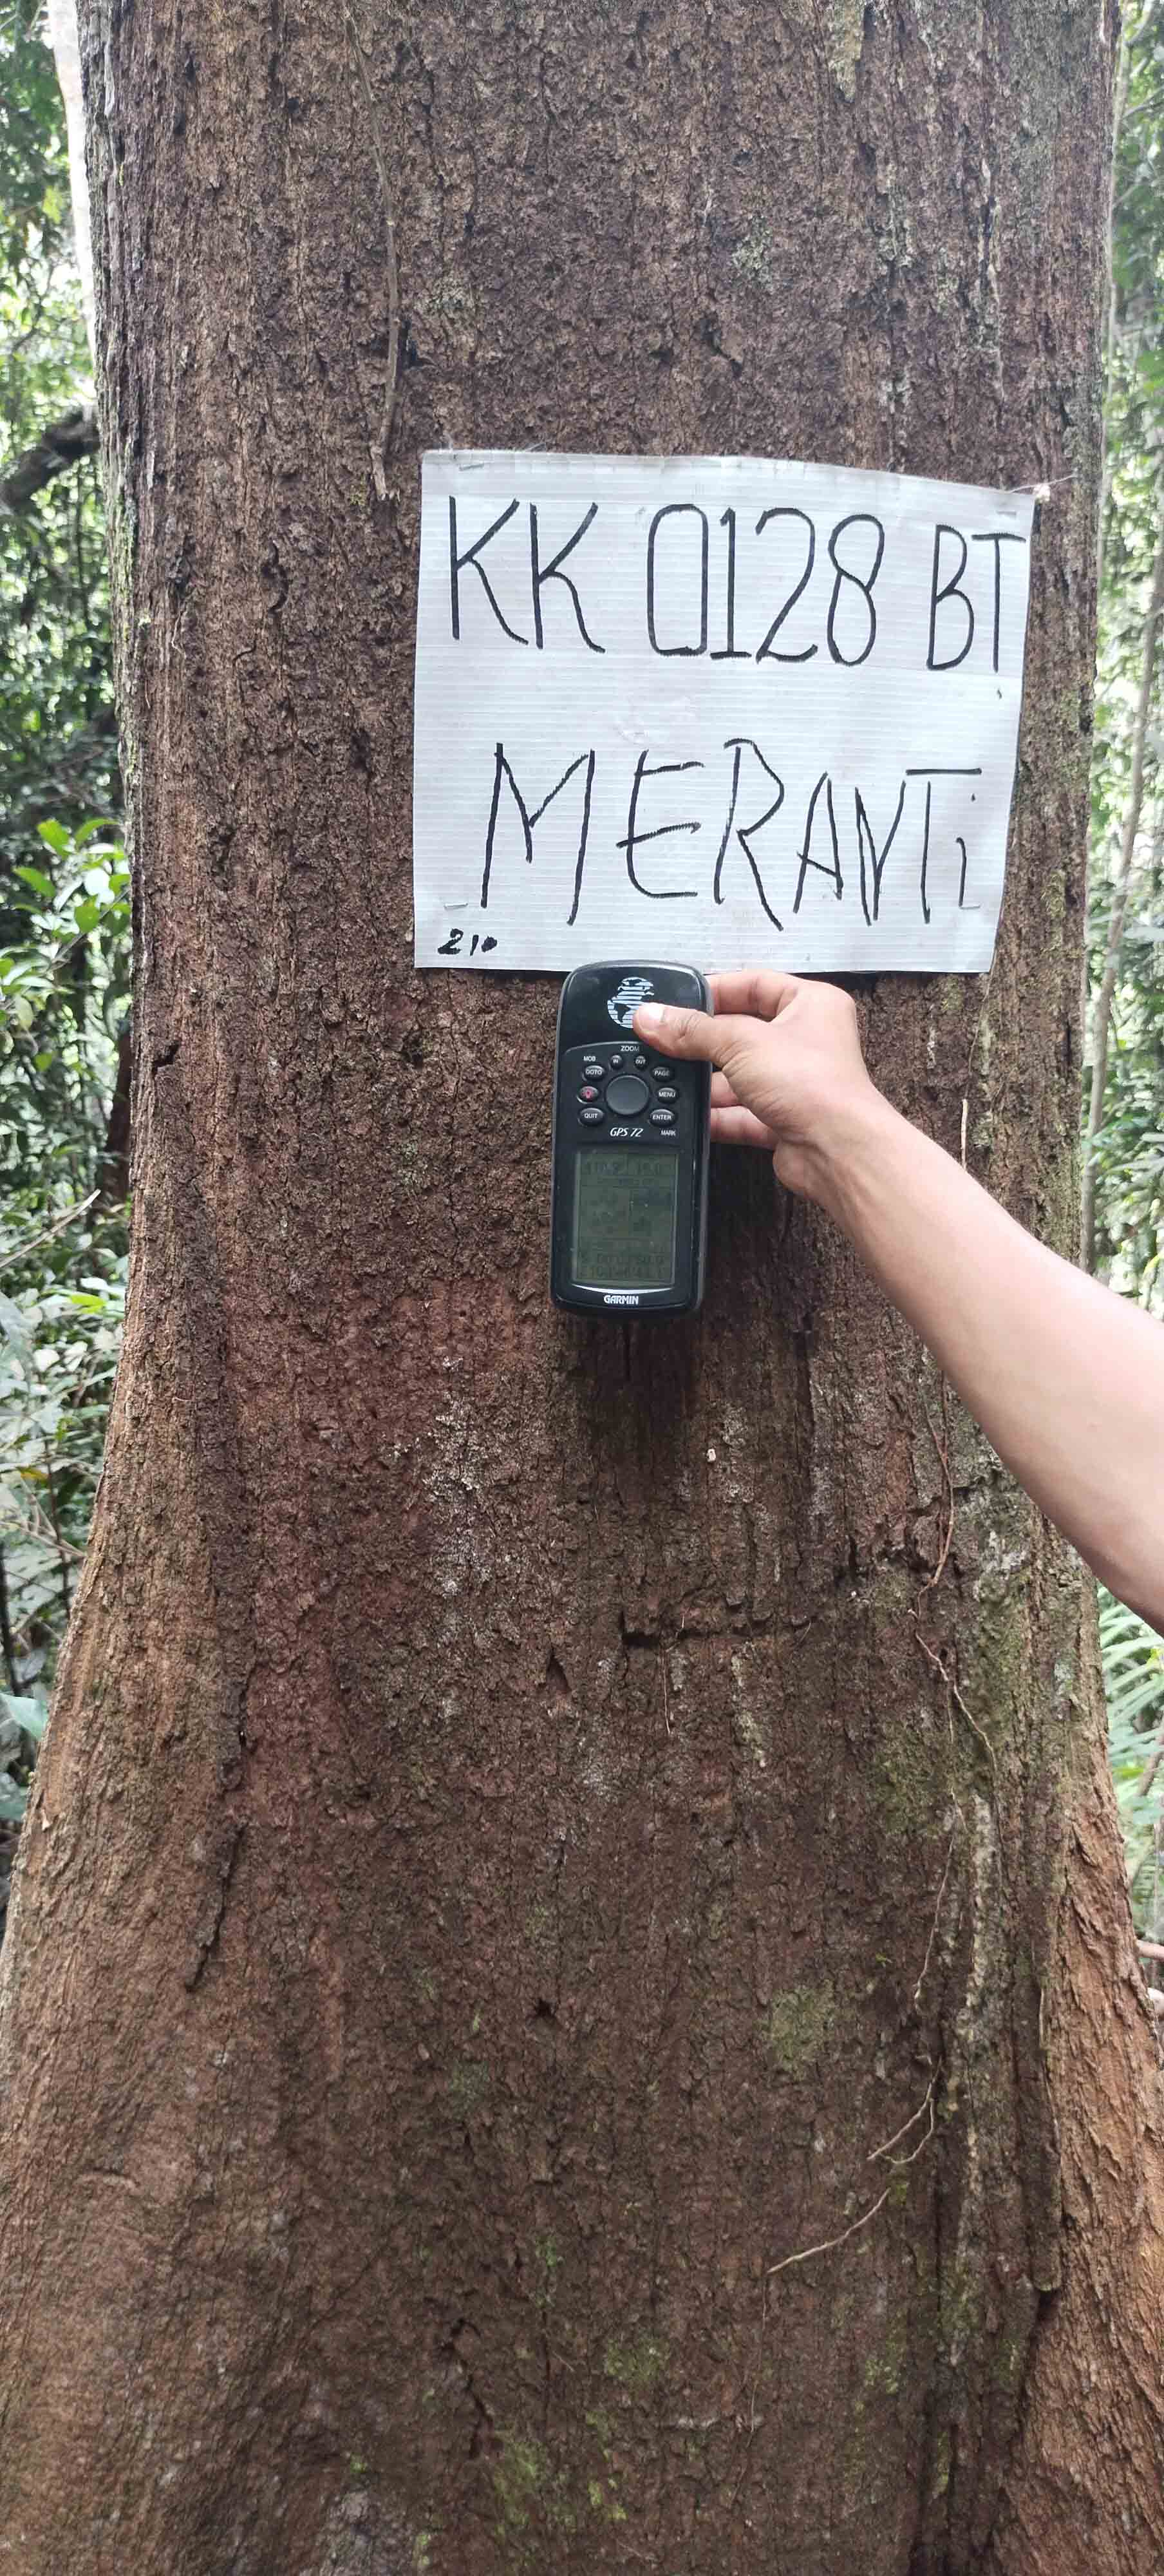 KK 0128 BT
MERANTi
210
ZOOM
MOB IN OUT
GOTO PAGE
MENU
QUIT ENTER
GPS 72 MARK
GARMIN